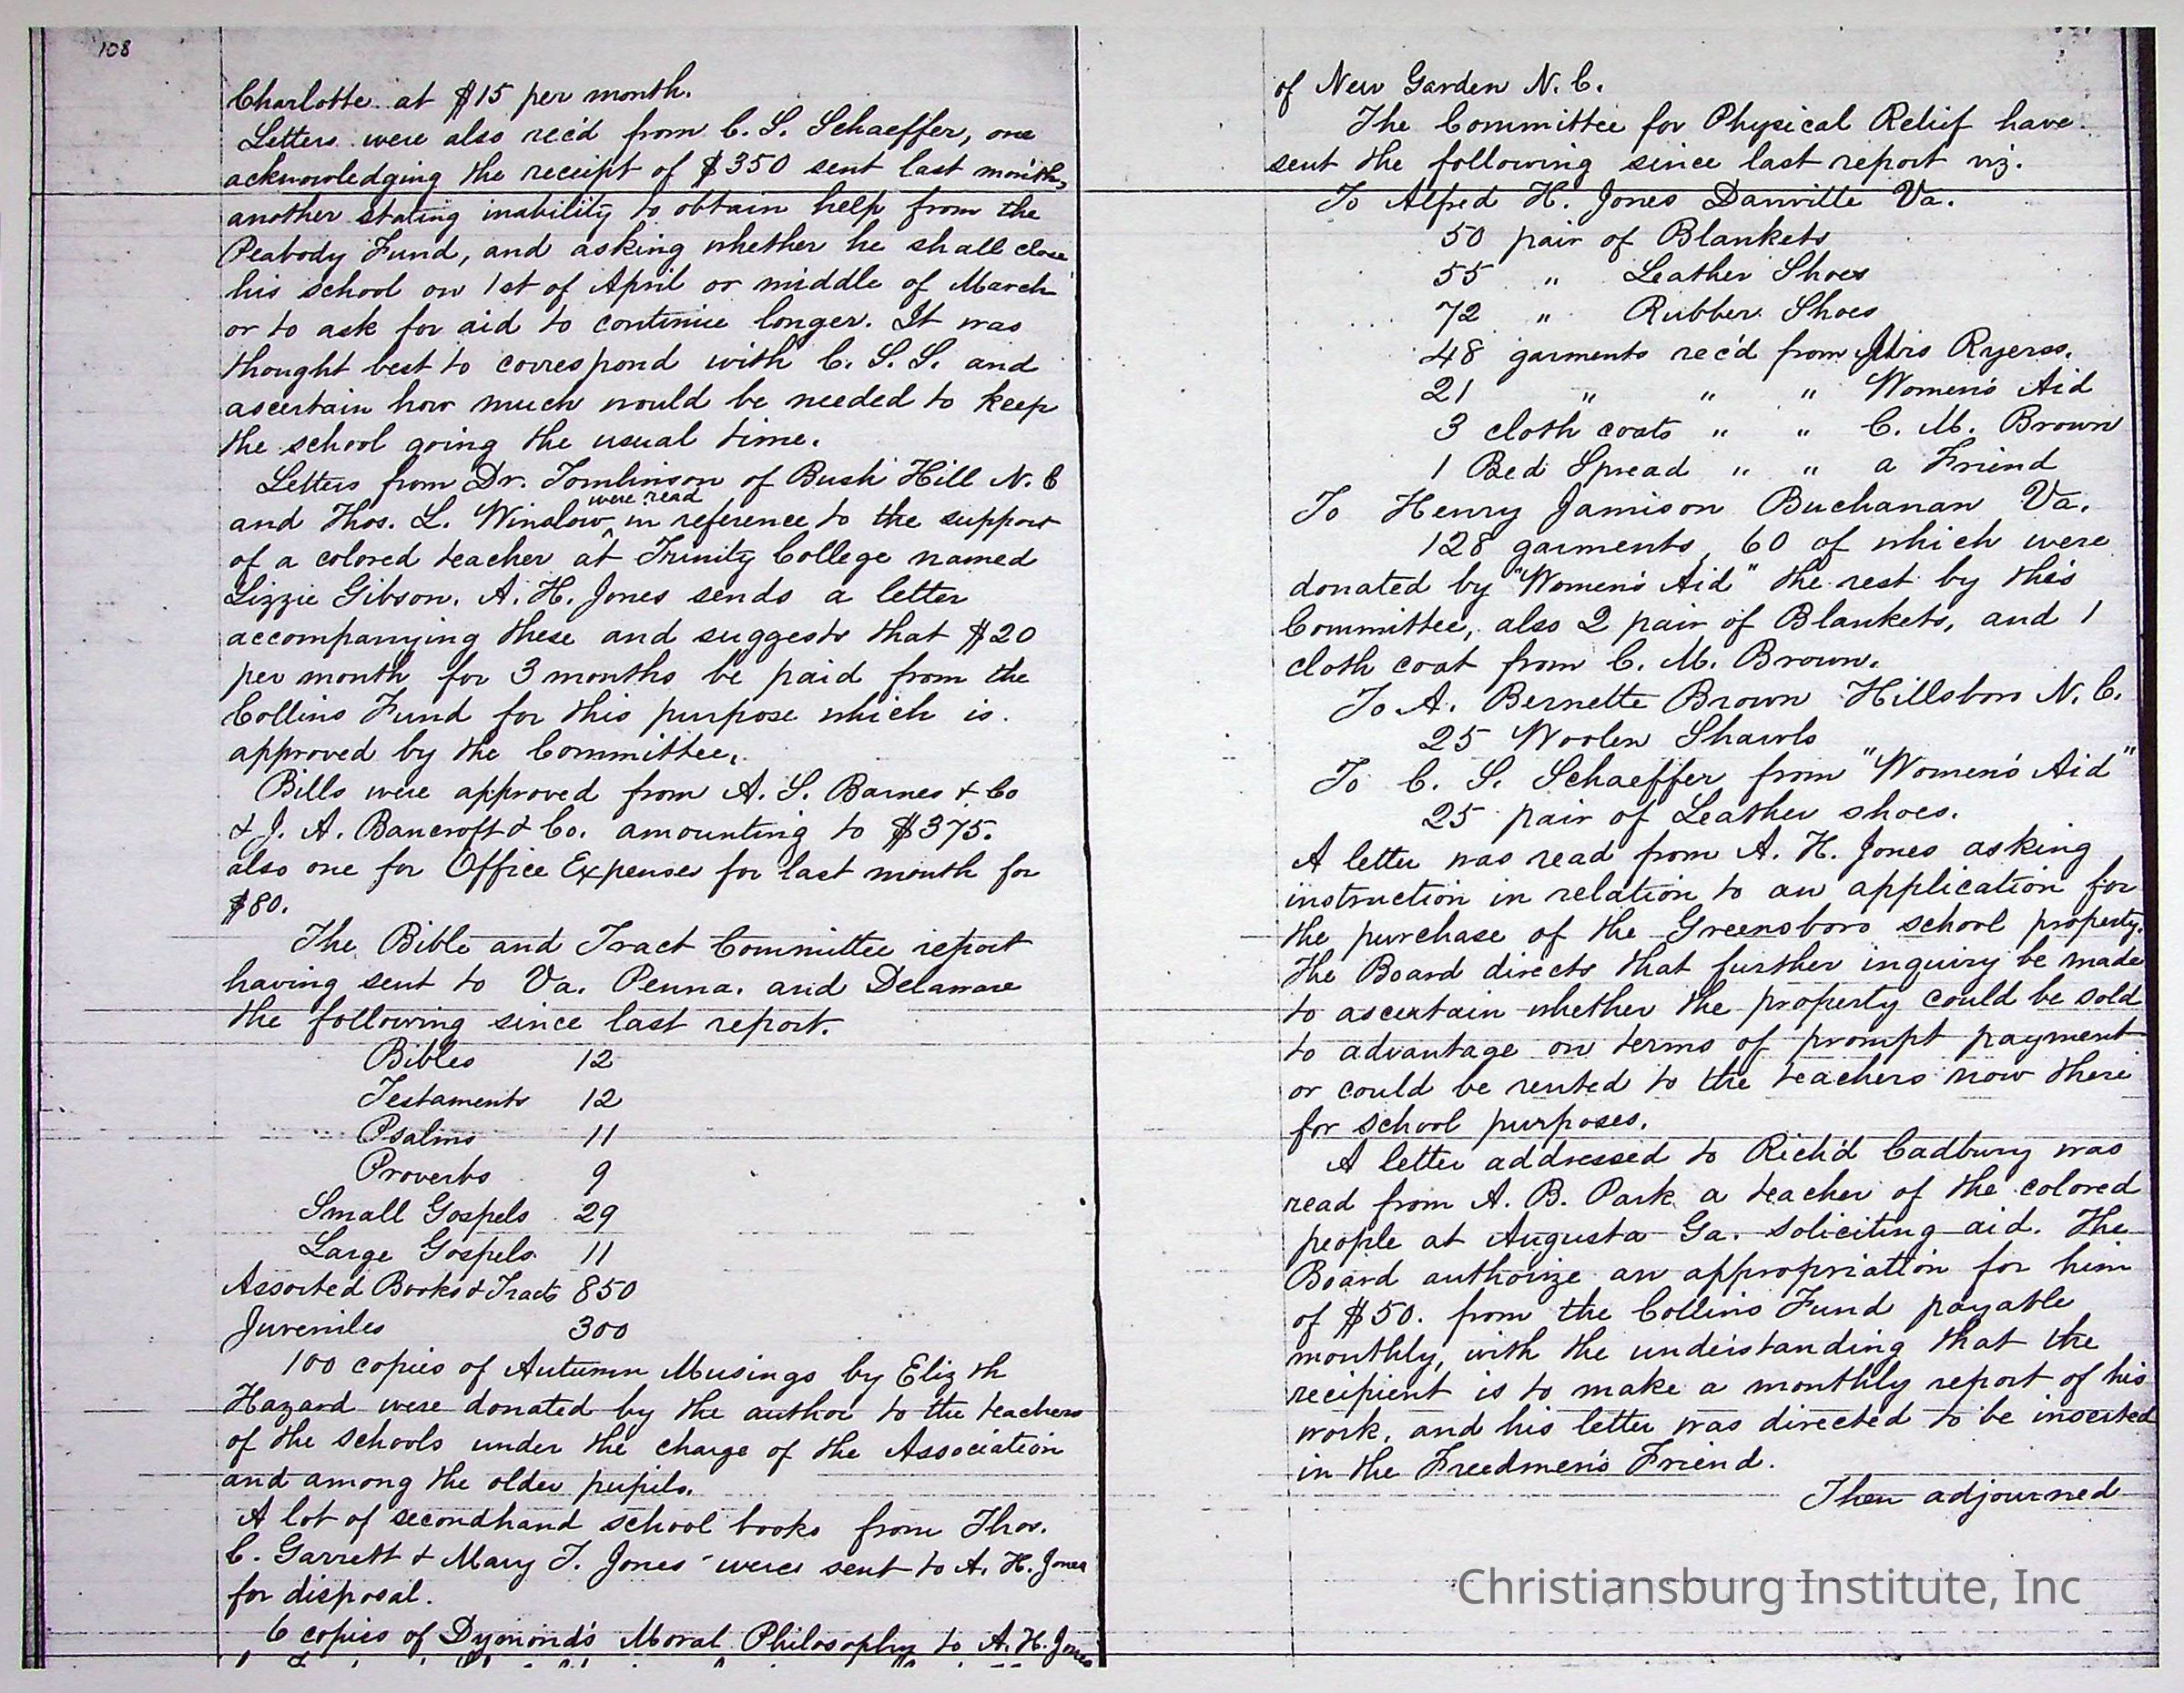 108
Charlotte at $15 per month.
Letters were also rec'd from C. S. Schaeffer, one
acknowledging the receipt of $350 sent last month,
another stating inability to obtain help from the
Peabody Fund, and asking whether he shall close
his school on 1st of April or middle of March
or to ask for aid to continue longer. It was
thought best to correspond with C. S. S. and
ascertain how much would be needed to keep
the school going the usual time.
Letters from Dr. Tomlinson of Bush Hill N. C
were read
and Thos. L. Winslow ^ in reference to the support
of a colored teacher at Trinity College named
Lizzie Gibson. A. H. Jones sends a letter
accompanying these and suggests that $20
per month for 3 months be paid from the
Collins Fund for this purpose which is
approved by the Committee.
Bills were approved from A. S. Barnes & Co
& J. A. Bancroft & Co. amounting to $375.
also one for Office Expenses for last month for
$80.
The Bible and Tract Committee report
having sent to Va. Penna. and Delaware
the following since last report.
Bibles 12
Testaments 12
Psalms 11
Proverbs 9
Small Gospels 29
Large Gospels 11
Assorted Books & Tracts 850
Juveniles 300
100 copies of Autumn Musings by Elizth
Hazard were donated by the author to the teachers
of the schools under the charge of the Association
and among the older pupils.
A lot of secondhand school books from Thos.
C. Garrett & Mary T. Jones were sent to A. H. Jones
for disposal.
6 copies of Dymond's Moral Philosophy to A. H. Jones
of New Garden N. C.
The Committee for Physical Relief have
sent the following since last report viz.
To Alfred H. Jones Danville Va.
50 pair of Blankets
55 " Leather Shoes
72 " Rubber Shoes
48 garments rec'd from Mrs Ryerss.
21 " " " Women's Aid
3 cloth coats " " C. M. Brown
1 Bed Spread " " a Friend
To Henry Jamison Buchanan Va.
128 garments, 60 of which were
donated by "Women's Aid" the rest by this
Committee, also 2 pair of Blankets, and 1
cloth coat from C. M. Brown.
To A. Bernette Brown Hillsboro N. C.
25 Woolen Shawls
To C. S. Schaeffer from "Women's Aid"
25 pair of Leather shoes.
A letter was read from A. H. Jones asking
instruction in relation to an application for
the purchase of the Greensboro school property.
The Board directs that further inquiry be made
to ascertain whether the property could be sold
to advantage on terms of prompt payment
or could be rented to the teachers now there
for school purposes.
A letter addressed to Rich'd Cadbury was
read from A. B. Park a teacher of the colored
people at Augusta Ga. soliciting aid. The
Board authorize an appropriation for him
of $50. from the Collins Fund payable
monthly, with the understanding that the
recipient is to make a monthly report of his
work, and his letter was directed to be inserted
in the Freedmen's Friend.
Then adjourned
Christiansburg Institute, Inc